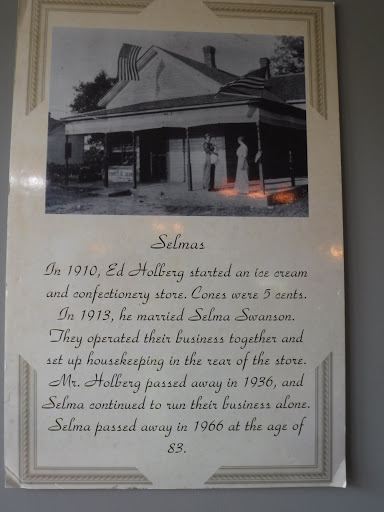 Selmas
In 1910, Ed Holberg started an ice cream
and confectionery store. Cones were 5 cents.
In 1913, he married Selma Swanson.
They operated their business together and
set up housekeeping in the rear of the store.
Mr. Holberg passed away in 1936, and
Selma continued to run their business alone.
Selma passed away in 1966 at the age of
83.